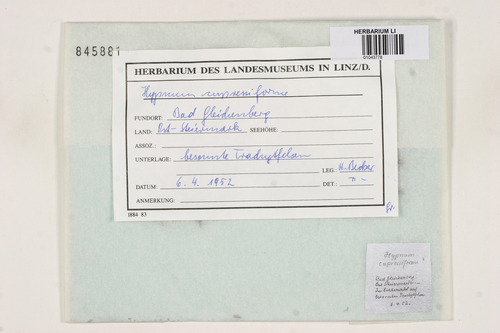 845881
HERBARIUM LI
01043778
HERBARIUM DES LANDESMUSEUMS IN LINZ/D.
Hypnum cupressiforme
FUNDORT: Bad Gleichenberg
LAND: Ost-Steiermark SEEHÖHE:
ASSOZ.:
UNTERLAGE: besonnte Trachytfelsen
LEG. H. Becker
DATUM: 6. 4. 1952 DET.: -"-
ANMERKUNG:
1884 83
Hypnum
cupressiforme
Bad Gleichenberg
Ost Steiermark
besonnten Trachytfelsen
6.4.52.